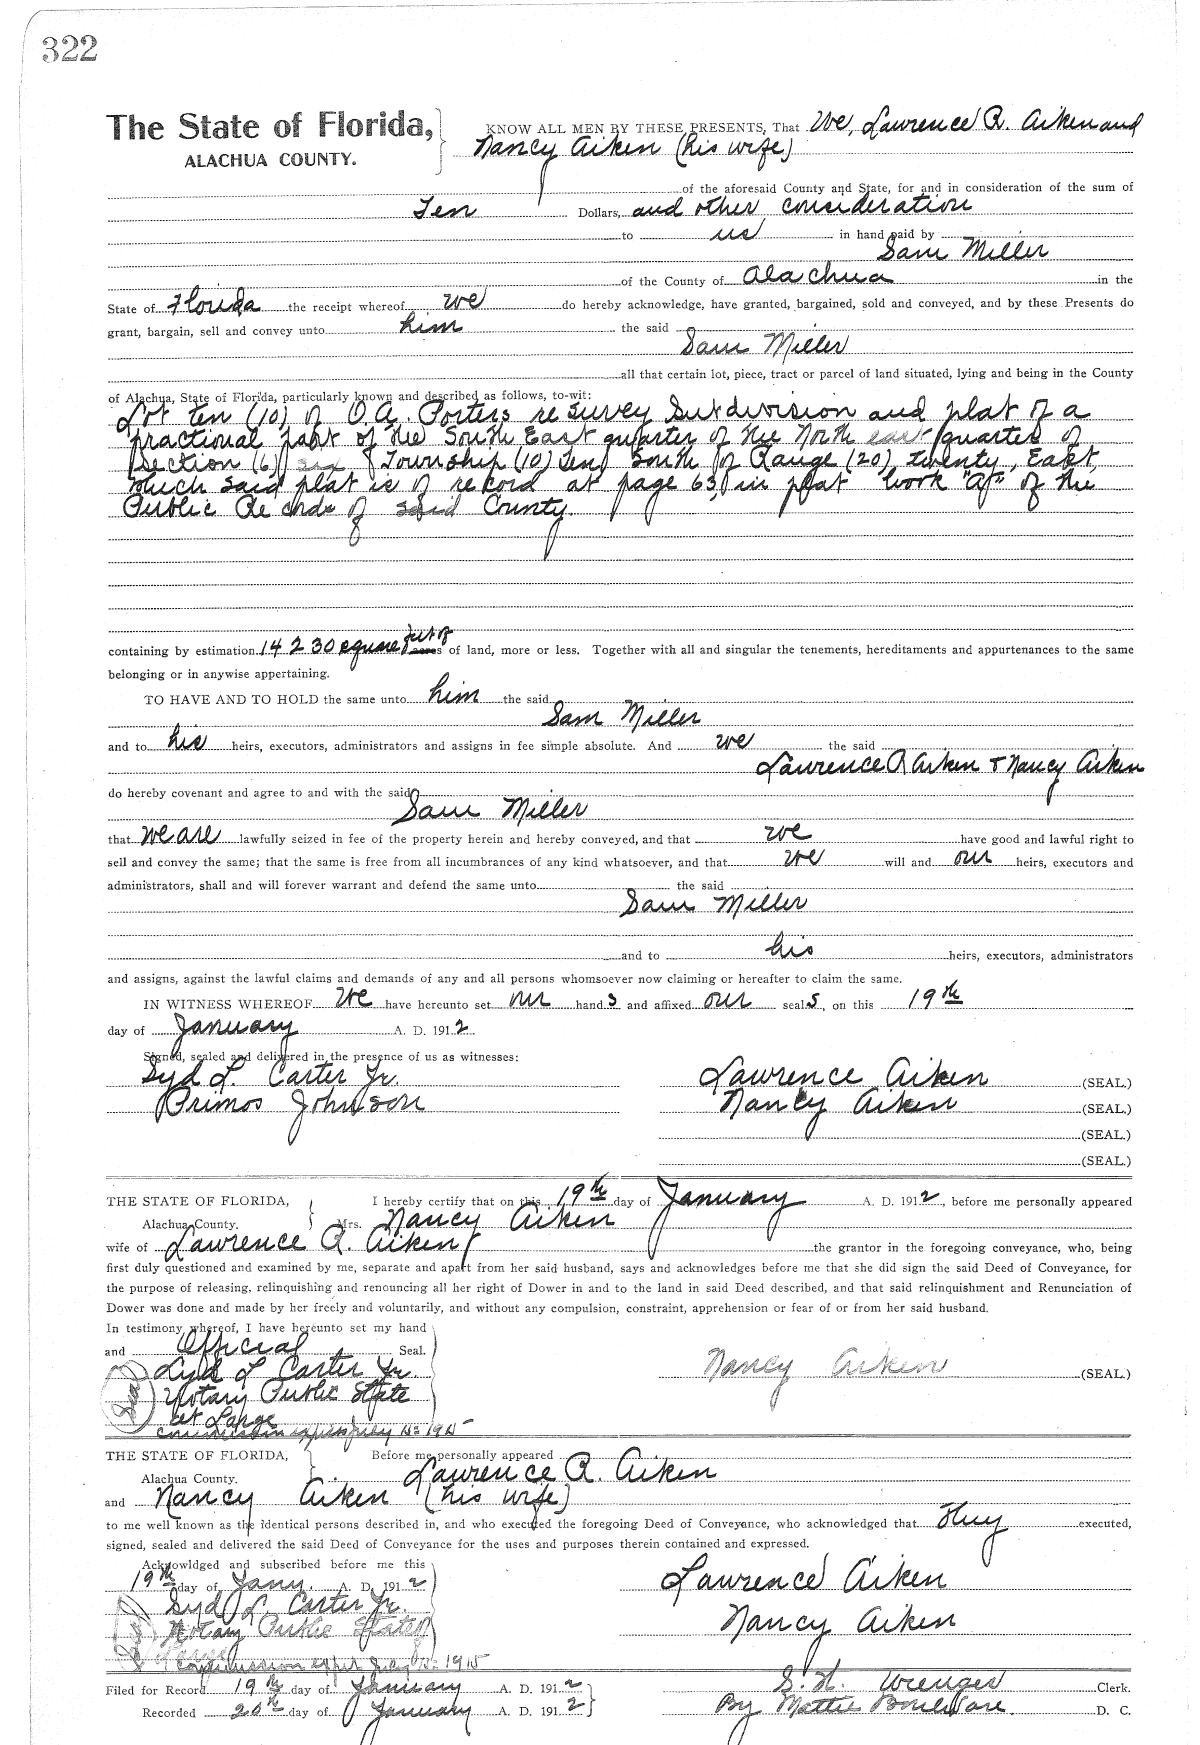 322
The State of Florida, KNOW ALL MEN BY THESE PRESENTS, That We, Lawrence R. Aiken and
ALACHUA COUNTY. Nancy Aiken (his wife)
of the aforesaid County and State, for and in consideration of the sum of
Ten Dollars, and other consideration
to us in hand paid by
Sam Miller
of the County of Alachua in the
State of Florida the receipt whereof we do hereby acknowledge, have granted, bargained, sold and conveyed, and by these Presents do
grant, bargain, sell and convey unto him the said
Sam Miller
all that certain lot, piece, tract or parcel of land situated, lying and being in the County
of Alachua, State of Florida, particularly known and described as follows, to-wit:
Lot ten (10) of O.A. Porters resurvey Subdivision and plat of a
fractional part of the South East quarter of the North east quarter of
Section (6) six, of Township (10) Ten, South of Range (20) twenty, East,
which said plat is of record at page 63, in plat book "A" of the
Public Records of said County.
containing by estimation 14230 square feet of acres of land, more or less. Together with all and singular the tenements, hereditaments and appurtenances to the same
belonging or in anywise appertaining.
TO HAVE AND TO HOLD the same unto him the said
Sam Miller
and to his heirs, executors, administrators and assigns in fee simple absolute. And we the said
Lawrence R Aiken & Nancy Aiken
do hereby covenant and agree to and with the said
Sam Miller
that we are lawfully seized in fee of the property herein and hereby conveyed, and that we have good and lawful right to
sell and convey the same; that the same is free from all incumbrances of any kind whatsoever, and that we will and our heirs, executors and
administrators, shall and will forever warrant and defend the same unto the said
Sam Miller
and to his heirs, executors, administrators
and assigns, against the lawful claims and demands of any and all persons whomsoever now claiming or hereafter to claim the same.
IN WITNESS WHEREOF We have hereunto set our hands and affixed our seals, on this 19th
day of January A. D. 1912
Signed, sealed and delivered in the presence of us as witnesses:
Syd L. Carter Jr. Lawrence Aiken (SEAL.)
Primos Johnson Nancy Aiken (SEAL.)
(SEAL.)
(SEAL.)
THE STATE OF FLORIDA, I hereby certify that on this 19th day of January A. D. 1912, before me personally appeared
Alachua County. Mrs. Nancy Aiken
wife of Lawrence R. Aiken the grantor in the foregoing conveyance, who, being
first duly questioned and examined by me, separate and apart from her said husband, says and acknowledges before me that she did sign the said Deed of Conveyance, for
the purpose of releasing, relinquishing and renouncing all her right of Dower in and to the land in said Deed described, and that said relinquishment and Renunciation of
Dower was done and made by her freely and voluntarily, and without any compulsion, constraint, apprehension or fear of or from her said husband.
In testimony whereof, I have hereunto set my hand
and Official Seal.
Syd L Carter Jr. Nancy Aiken (SEAL.)
(Seal) Notary Public State
at Large
Commission expires July 1915
THE STATE OF FLORIDA, Before me personally appeared
Alachua County. Lawrence R. Aiken
and Nancy Aiken (his wife)
to me well known as the identical persons described in, and who executed the foregoing Deed of Conveyance, who acknowledged that they executed,
signed, sealed and delivered the said Deed of Conveyance for the uses and purposes therein contained and expressed.
Acknowldged and subscribed before me this
19th day of Jany. A. D. 1912 Lawrence Aiken
Syd L. Carter Jr.
(Seal) Notary Public State Nancy Aiken
Large
Commission 1915
Filed for Record 19th day of January A. D. 1912 S. H. Wienges Clerk.
Recorded 20th day of January A. D. 1912 By Mattie Bouleware. D. C.